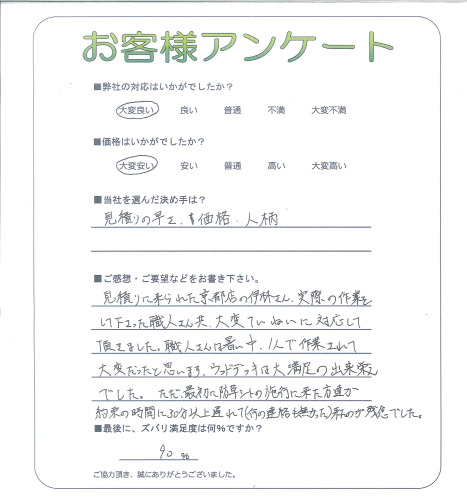 お客様アンケート
■弊社の対応はいかがでしたか？
大変良い 良い 普通 不満 大変不満
■価格はいかがでしたか？
大変安い 安い 普通 高い 大変高い
■当社を選んだ決め手は？
見積りの早さ、価格、人柄
■ご感想・ご要望などをお書き下さい。
見積りに来られた京都店の伊林さん、実際の作業を
して下さった職人さん共、大変ていねいに対応して
頂きました。職人さんは暑い中、1人で作業されて
大変だったと思います。ウッドデッキは大満足の出来栄え
でした。ただ、最初に防草シートの施行に来た方達が
約束の時間に30分以上遅れて(何の連絡も無かった)来たのが残念でした。
■最後に、ズバリ満足度は何%ですか？
90 %
ご協力頂き、誠にありがとうございました。